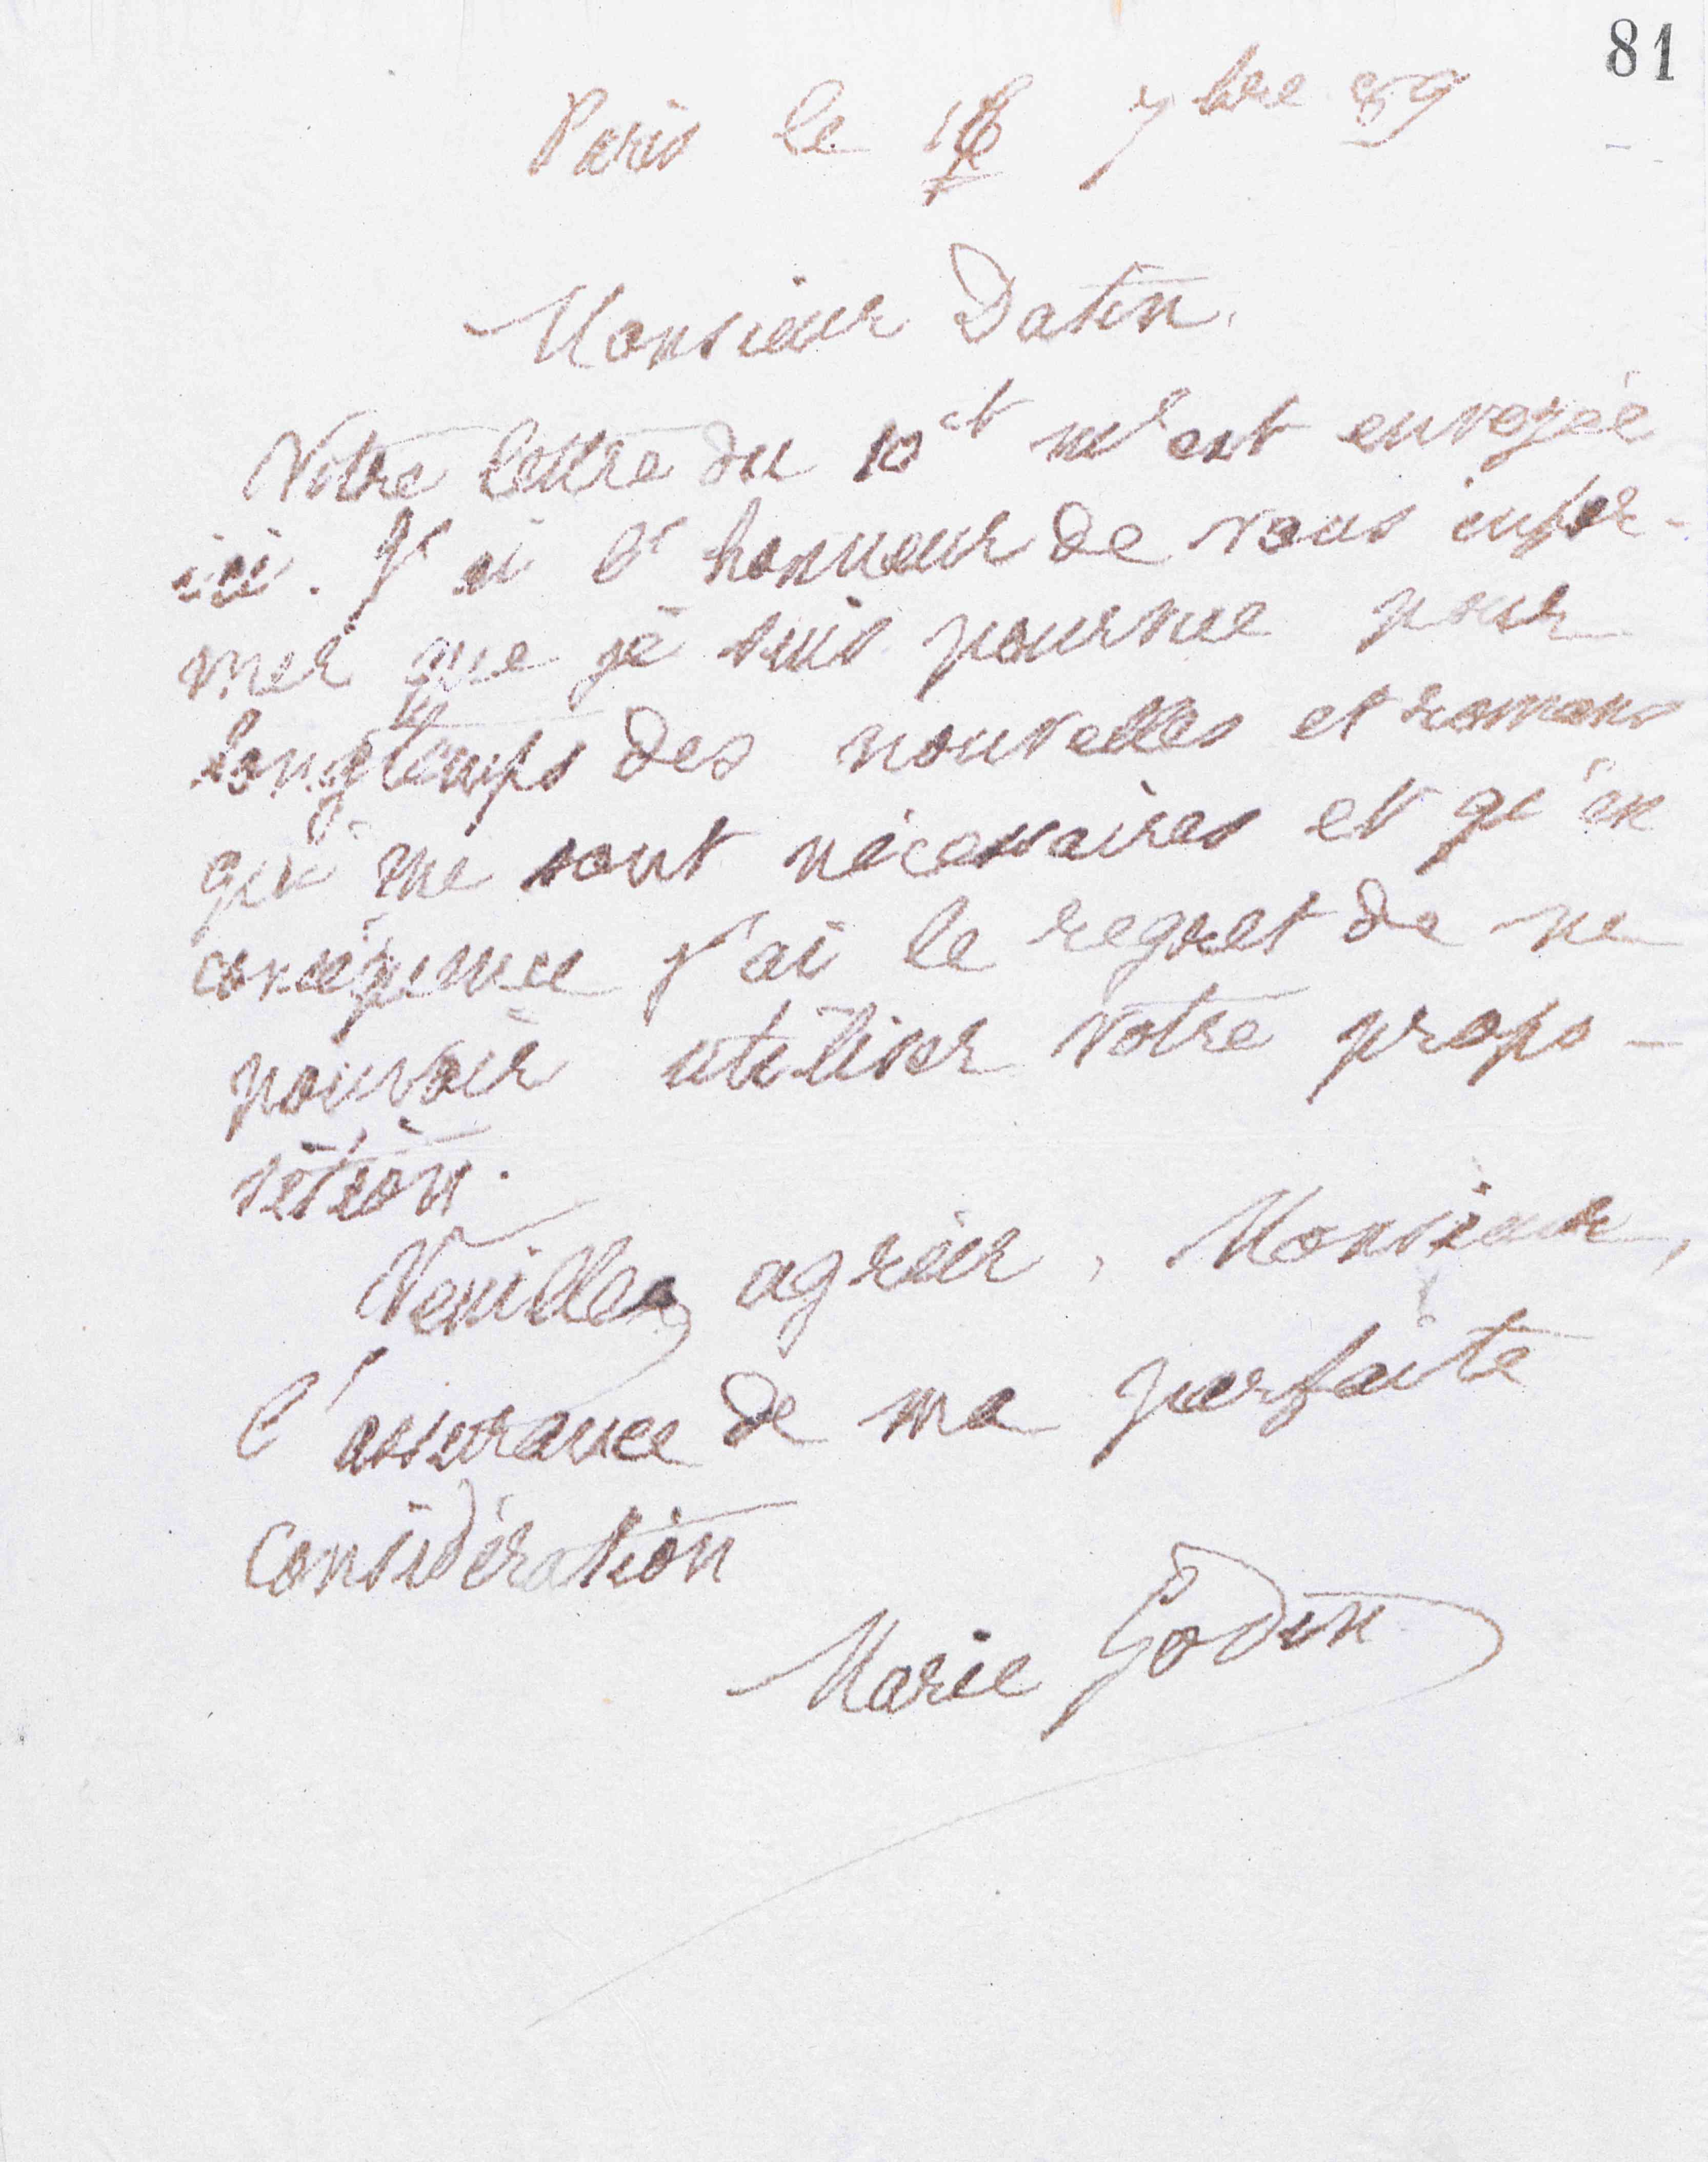 81
Paris le 16 7bre 89
Monsieur Datin,
Votre lettre du 10 ct m'est envoyée
ici. J'ai l'honneur de vous infor-
mer que je suis pourvue pour
longtemps des nouvelles et romans
qui me sont nécessaires et qu'en
conséquence j'ai le regret de ne
pouvoir utiliser votre propo-
sition.
Veuillez agréer, Monsieur,
l'assurance de ma parfaite
considération
Marie Godin